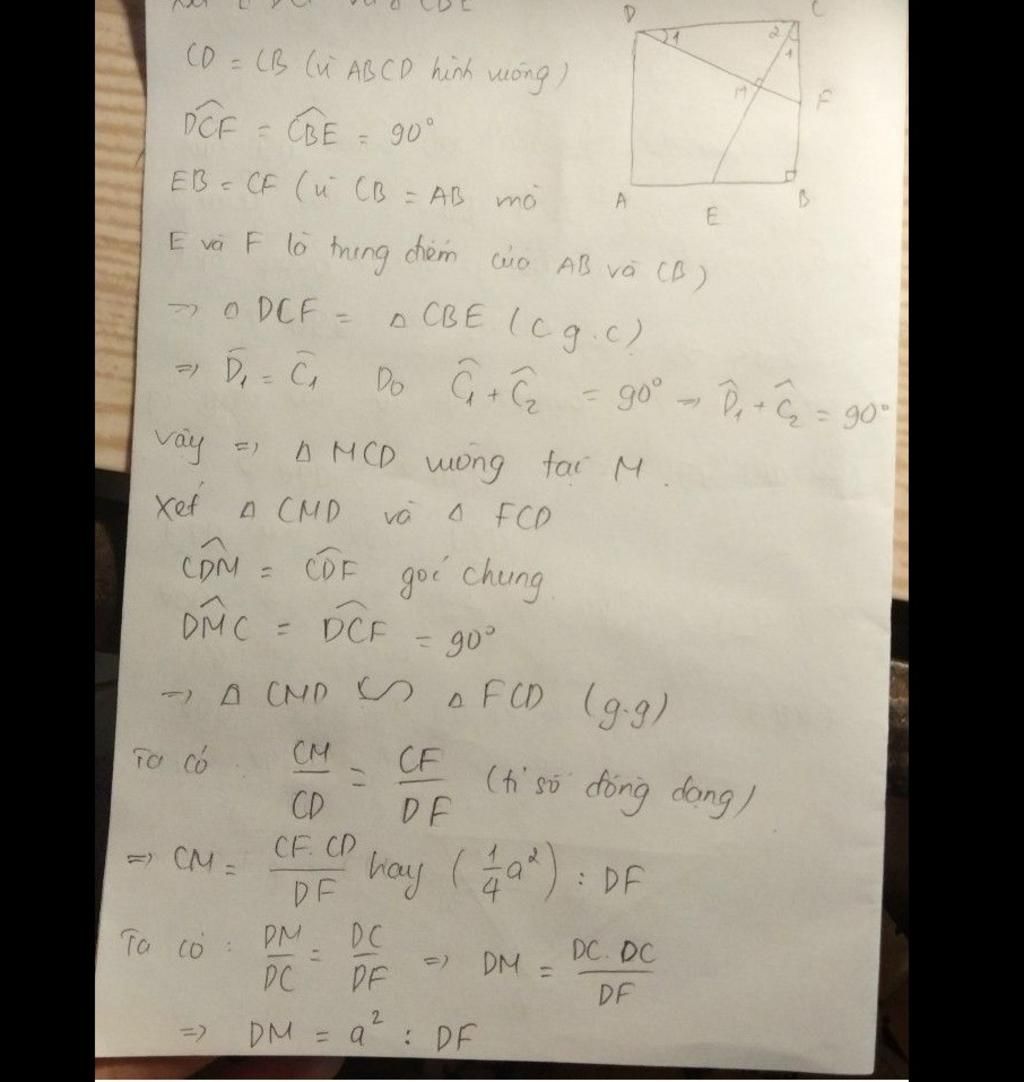 CBE
CD = CB (vì ABCD hình vuông)
D̂CF = ĈBE = 90°
EB = CF (vì CB = AB mà
E và F là trung điểm của AB và CB)
=> △ DCF = △ CBE (c g.c)
=> D̂₁ = Ĉ₁ Do Ĉ₁ + Ĉ₂ = 90° => D̂₁ + Ĉ₂ = 90°
vậy => △ MCD vuông tại M.
Xét △ CMD và △ FCD
ĈDM = ĈDF góc chung
D̂MC = D̂CF = 90°
=> △ CMD ∽ △ FCD (g.g)
Ta có CM/CD = CF/DF (tỉ số đồng dạng)
=> CM = CF.CD/DF hay (1/4 a²) : DF
Ta có : DM/DC = DC/DF => DM = DC.DC/DF
=> DM = a² : DF
D C
1 2
1
M F
A E B